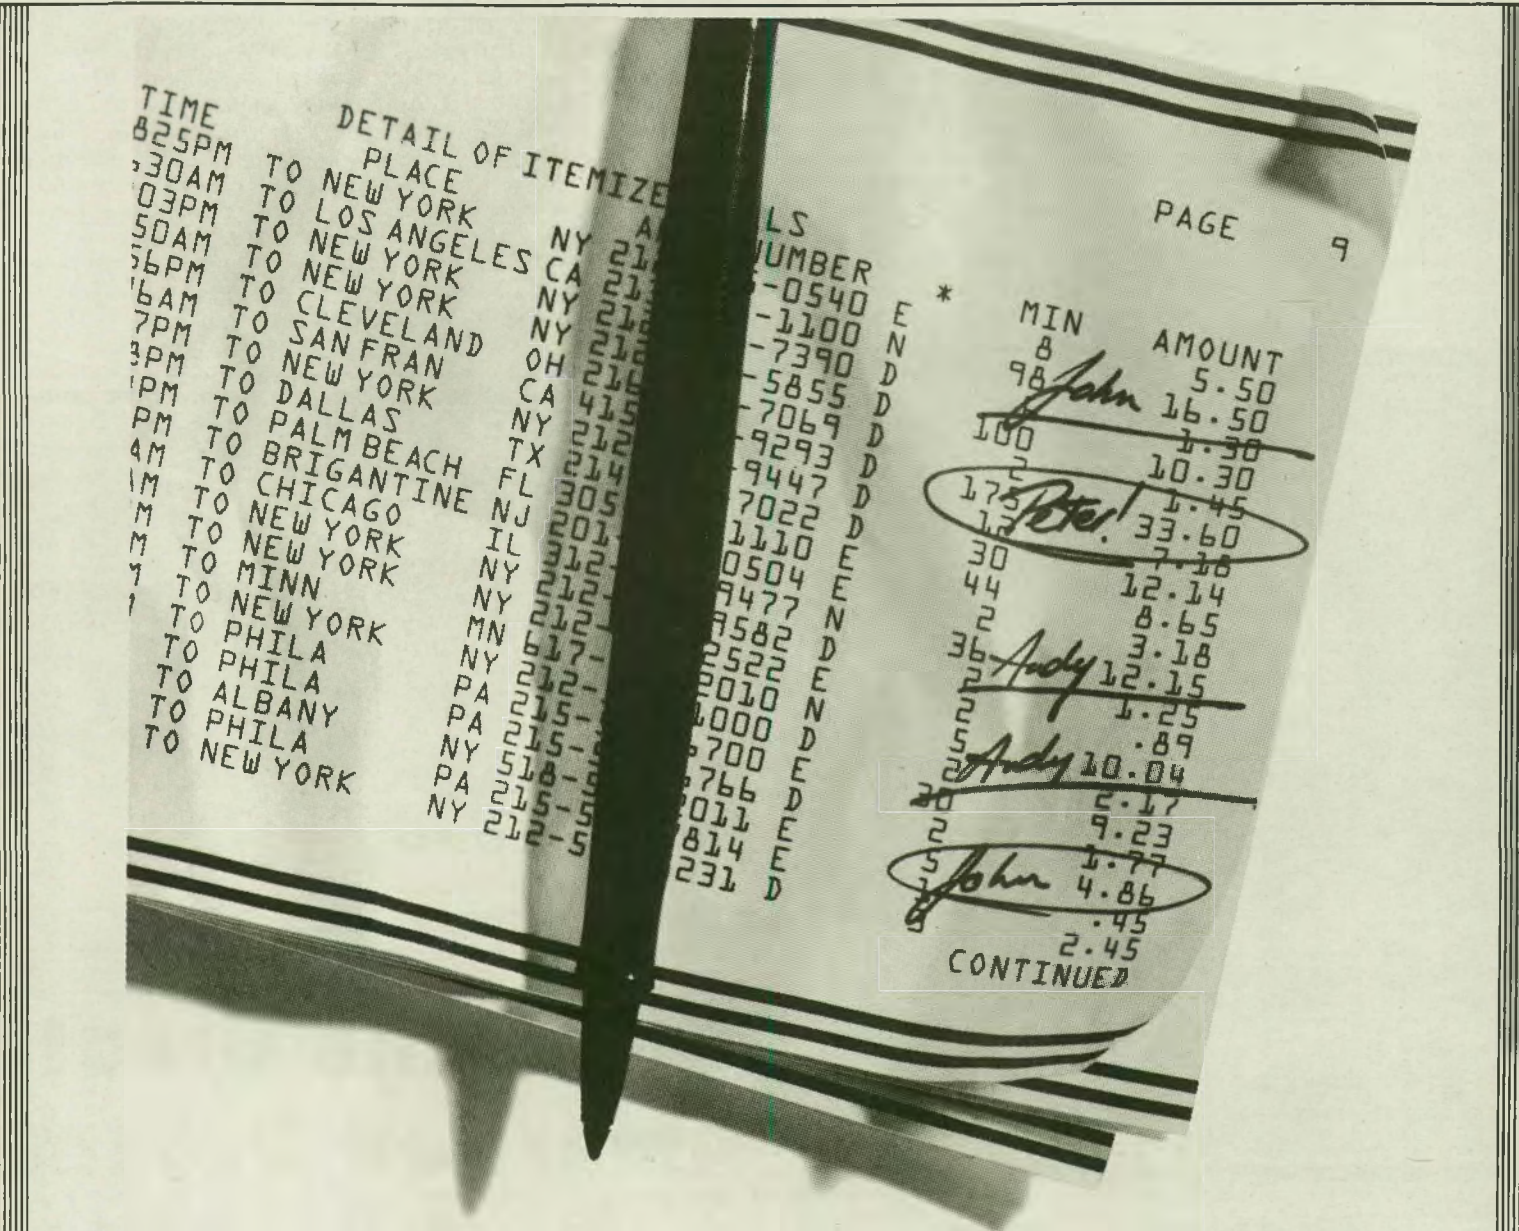 PAGE 9
DETAIL OF ITEMIZE LS
TIME PLACE NUMBER * MIN AMOUNT
825PM TO NEW YORK NY -0540 E 8 5.50
30AM TO LOS ANGELES CA -1100 N 98 John 16.50
03PM TO NEW YORK NY -7390 D 1.30
50AM TO NEW YORK NY -5855 D 100 10.30
56PM TO CLEVELAND OH 216 -7069 D 2 1.45
6AM TO SAN FRAN CA 415 -9293 D 175 Peter! 33.60
7PM TO NEW YORK NY 212 -9447 D 12 7.18
PM TO DALLAS TX 214 7022 D 30 12.14
PM TO PALM BEACH FL 305 1110 E 44 8.65
PM TO BRIGANTINE NJ 201- 0504 E 2 3.18
AM TO CHICAGO IL 312- 9477 N 36 Andy 12.15
M TO NEW YORK NY 212- 9582 D 2 1.25
M TO NEW YORK NY 212- 2522 E 2 .89
M TO MINN MN 617- 2010 N 5 Andy 10.04
TO NEW YORK NY 212- 1000 D 2 2.17
TO PHILA PA 215- 700 E 30 9.23
TO PHILA PA 215- 766 D 2 1.77
TO ALBANY NY 518- 2011 E 5 John 4.86
TO PHILA PA 215-5 814 E 1 .45
TO NEW YORK NY 212-5 231 D 8 2.45
CONTINUED